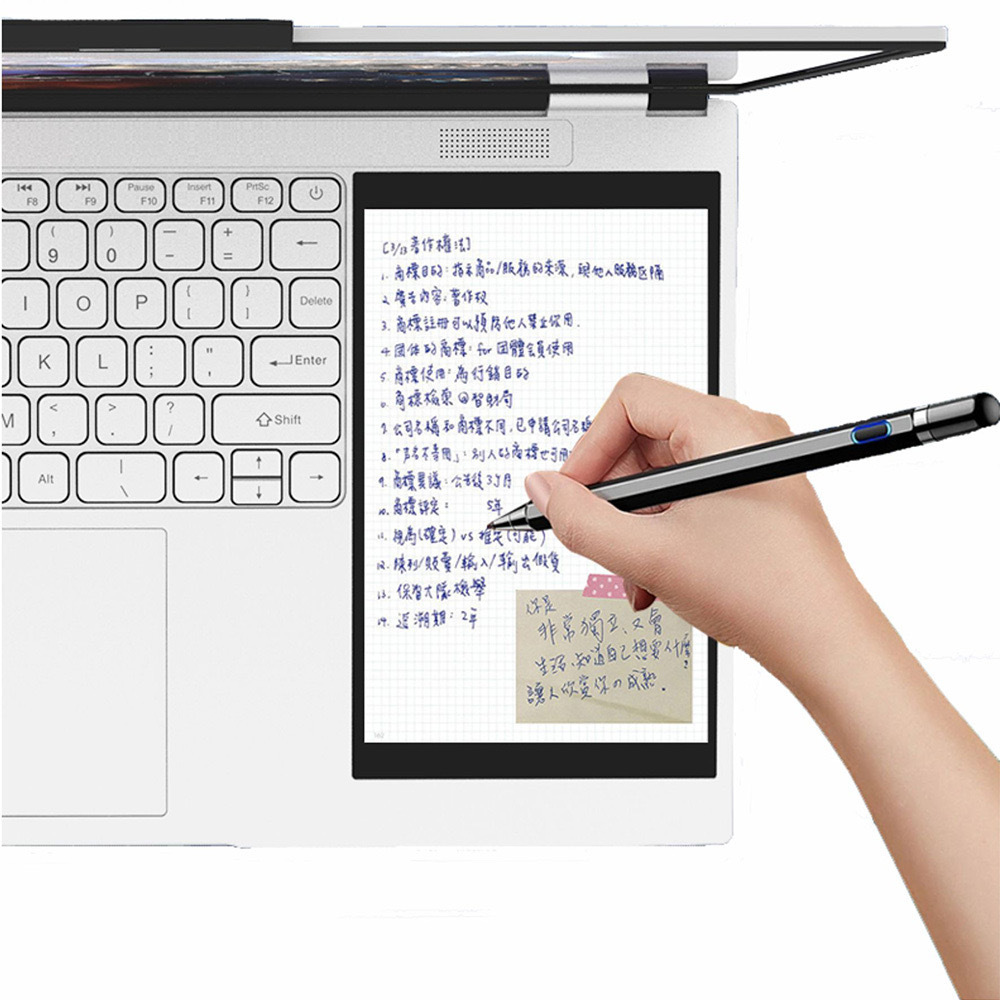 F8 F9 Pause F10 Insert F11 PrtSc F12
( 9 ) 0 – - + = ←
I O P { [ } ] Delete
K L : ; " ' Enter
M < , > . ? / Shift
Alt | \ ← ↑ ↓ →
[3/13 著作權法]
1. 商標目的：指示商品/服務的來源，跟他人服務區隔
2. 廣告內容：著作权
3. 商標註冊可以預防他人禁止你用．
4. 团体的商標：for 团體会員使用
5. 商標使用：為行銷目的
6. 商標檢索 @智財局
7. 公司名稱和商標不同，已申請公司名稱
8. 「戶名不等同」：別人的商標也可用
9. 商標異議：公告後3个月
10. 商標評定： 5年
11. 視為(確定) vs 推定(可能)
12. 陳列/販賣/輸入/輸出假貨
13. 保智大隊 檢舉
14. 追溯期：2年
你是
非常獨立、又會
生活、知道自己想要什麼
讓人欣賞你の成熟．